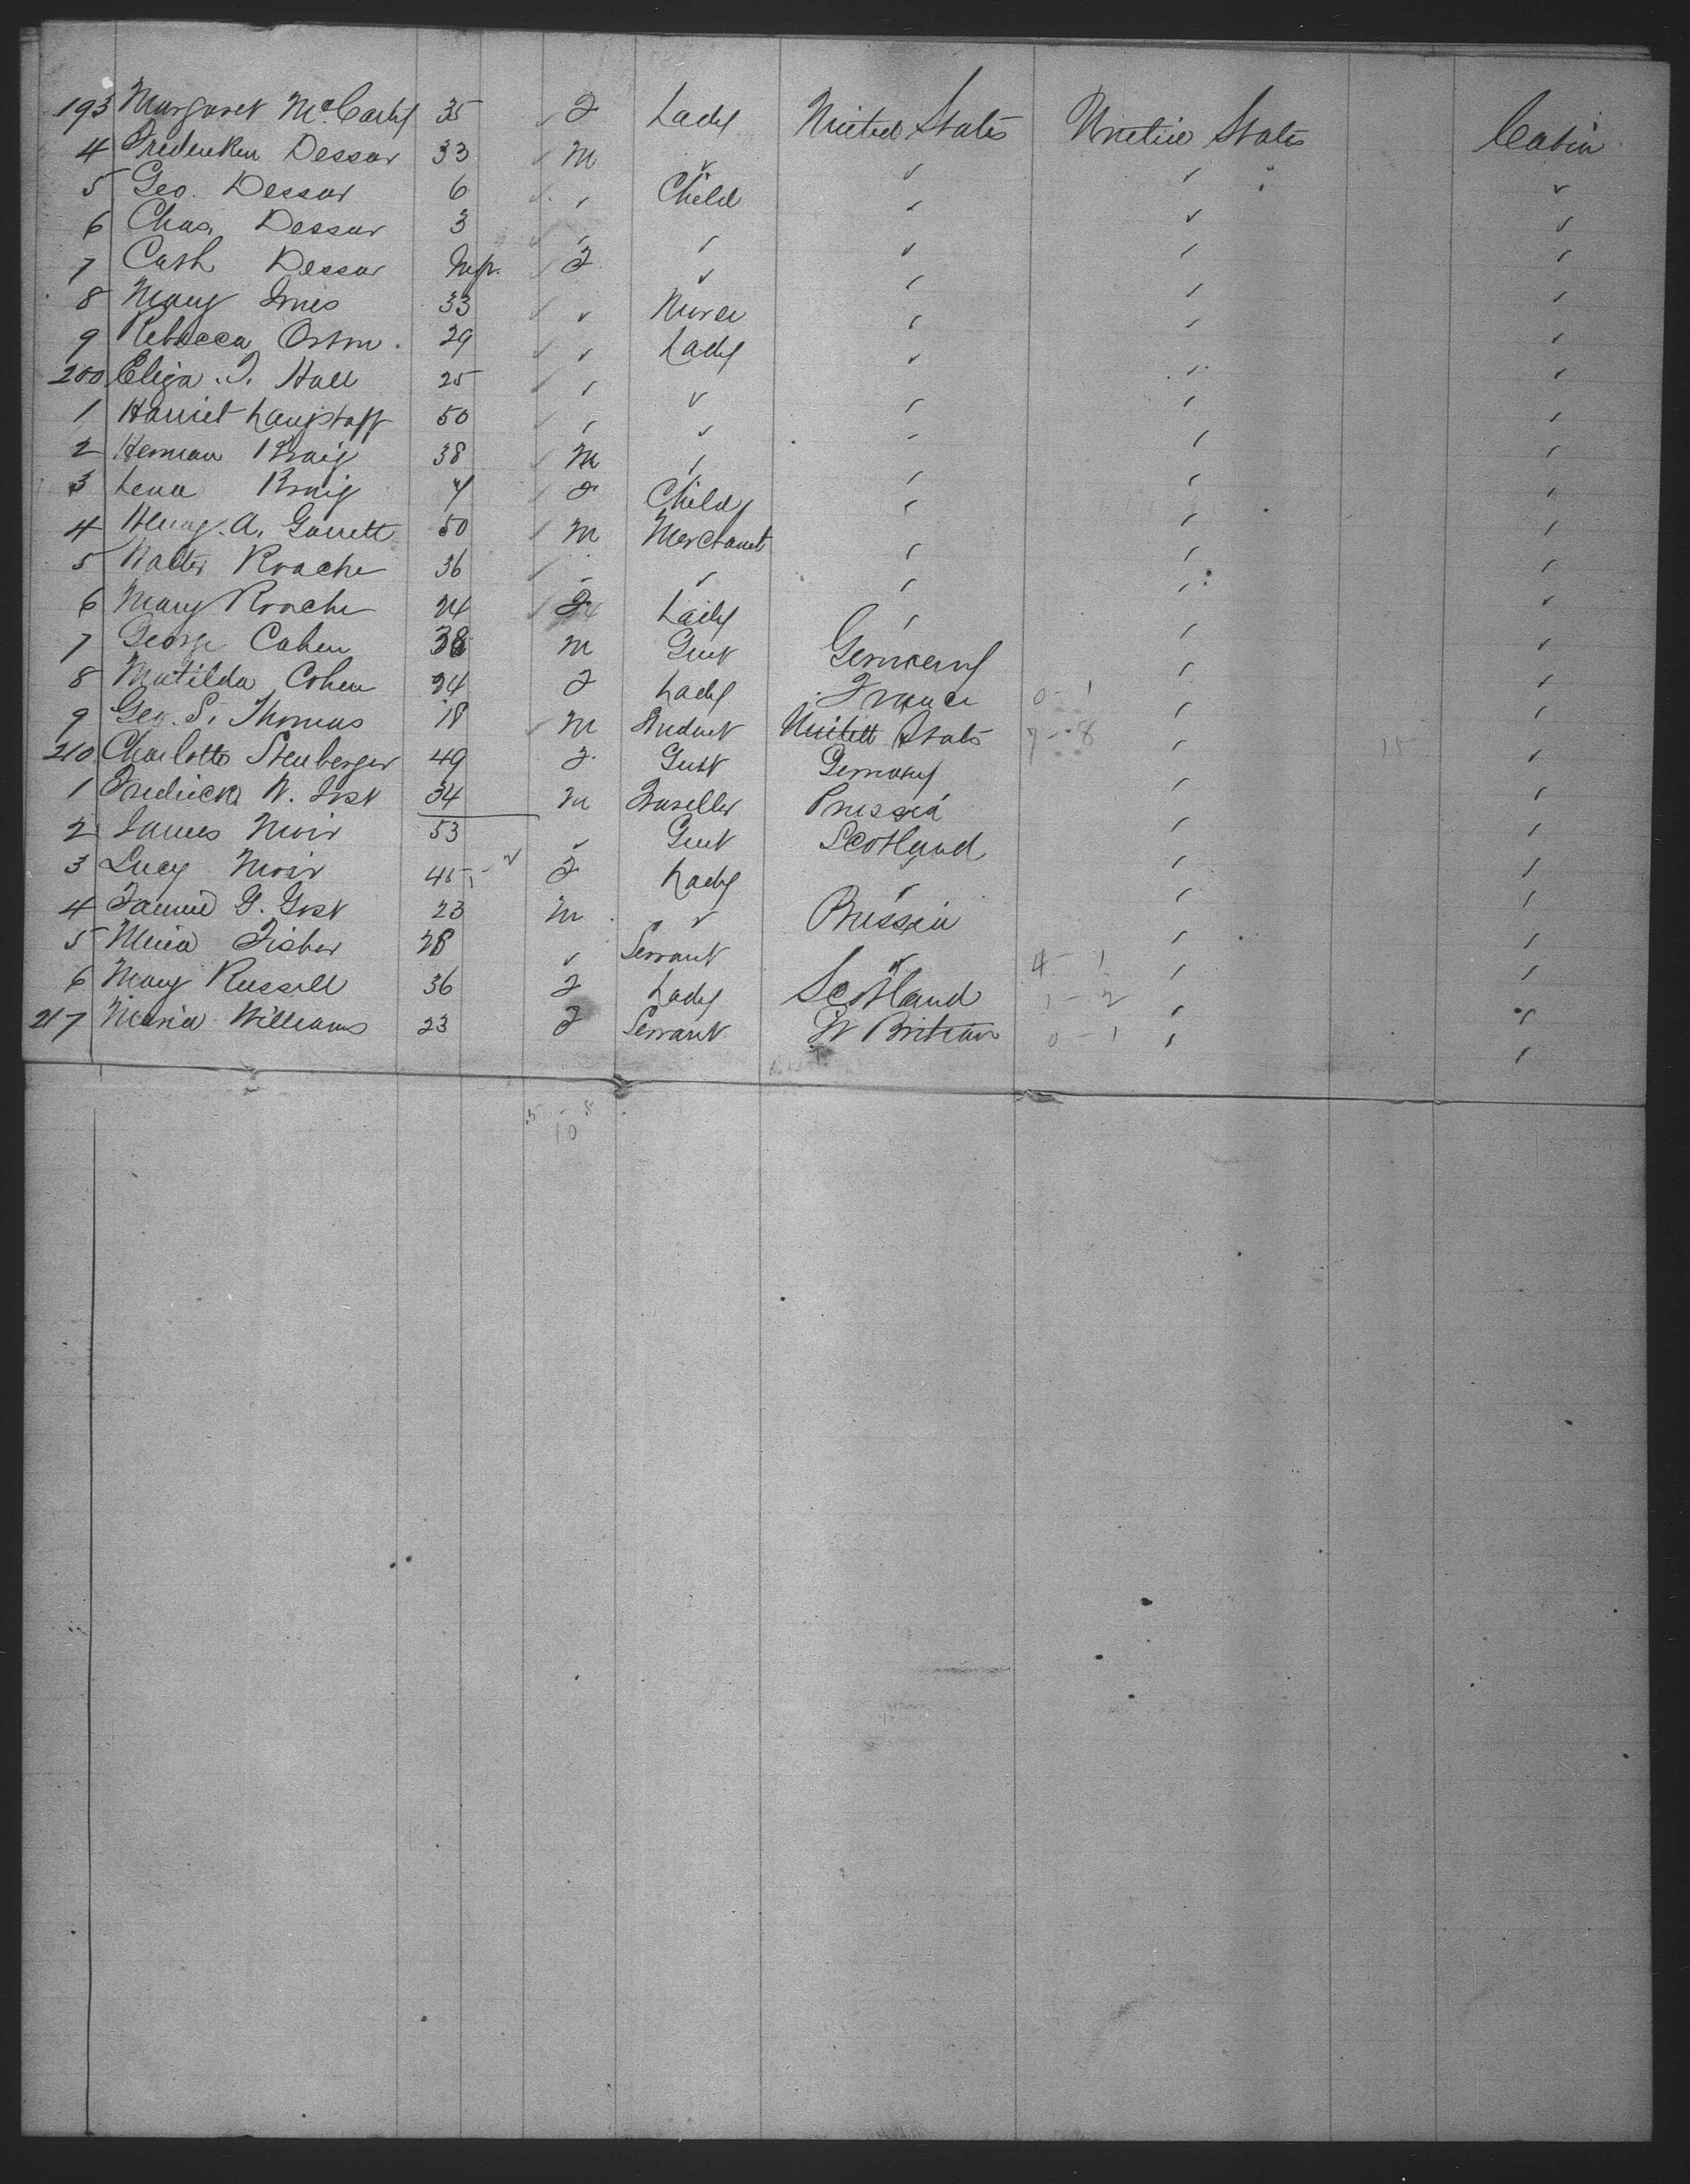 193 Margaret McCarthy 35 ✓ F Lady United States United States Cabin
4 Dessar 33 ✓ M ✓ ✓ ✓ ✓
5 Geo. Dessar 6 ✓ ✓ Child ✓ ✓ ✓
6 Chas. Dessar 3 ✓ ✓ ✓ ✓ ✓ ✓
7 Cath Dessar Inft. ✓ F ✓ ✓ ✓ ✓
8 Mary 33 ✓ ✓ Nurse ✓ ✓ ✓
9 Rebecca 29 ✓ ✓ Lady ✓ ✓ ✓
200 Eliza. T. Hall 25 ✓ ✓ ✓ ✓ ✓ ✓
1 Harriet Langstaff 50 ✓ ✓ ✓ ✓ ✓ ✓
2 Herman 38 ✓ M ✓ ✓ ✓ ✓
3 Lena ✓ F Child ✓ ✓ ✓
4 Henry. A. Garrett 50 ✓ M Merchant ✓ ✓ ✓
5 Walter Roache 36 ✓ ✓ ✓ ✓ ✓ ✓
6 Mary Roache 24 ✓ F Lady ✓ ✓ ✓
7 George Cohen 38 M Gent Germany ✓ ✓
8 Matilda Cohen 24 F Lady France 0-1 ✓ ✓
9 Geo. S. Thomas 18 ✓ M Student United States 7-8 ✓ ✓
210 Charlotte Stenberger 49 F Gent Germany ✓ 15 ✓
1 Fredrick W. Jost 34 M Traveller Prussia ✓ ✓
2 James Moir 53 ✓ Gent Scotland ✓ ✓
3 Lucy Moir 45 ✓ F Lady ✓ ✓ ✓
4 G. Gost 23 M ✓ Prussia ✓ ✓
5 Fisher 28 ✓ Servant ✓ 4-1 ✓ ✓
6 Mary Russell 36 F Lady Scotland 1-2 ✓ ✓
217 Maria Williams 23 F Servant Gt Britain 0-1 ✓ ✓
5-8
10